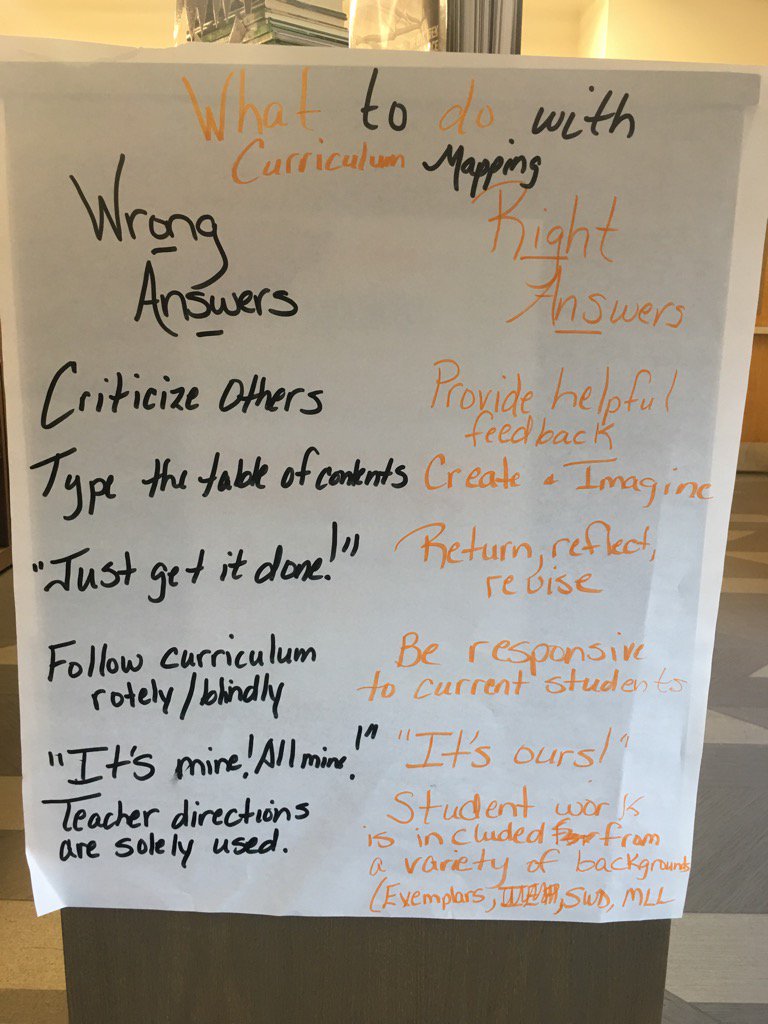 What to do with
Curriculum Mapping
Wrong
Answers
Criticize Others
Type the table of contents
"Just get it done!"
Follow curriculum
rotely/blindly
"It's mine! All mine!"
Teacher directions
are solely used.
Right
Answers
Provide helpful
feedback
Create & Imagine
Return, reflect,
revise
Be responsive
to current students
"It's ours!"
Student work
is included from
a variety of backgrounds
(Exemplars, SWD, MLL